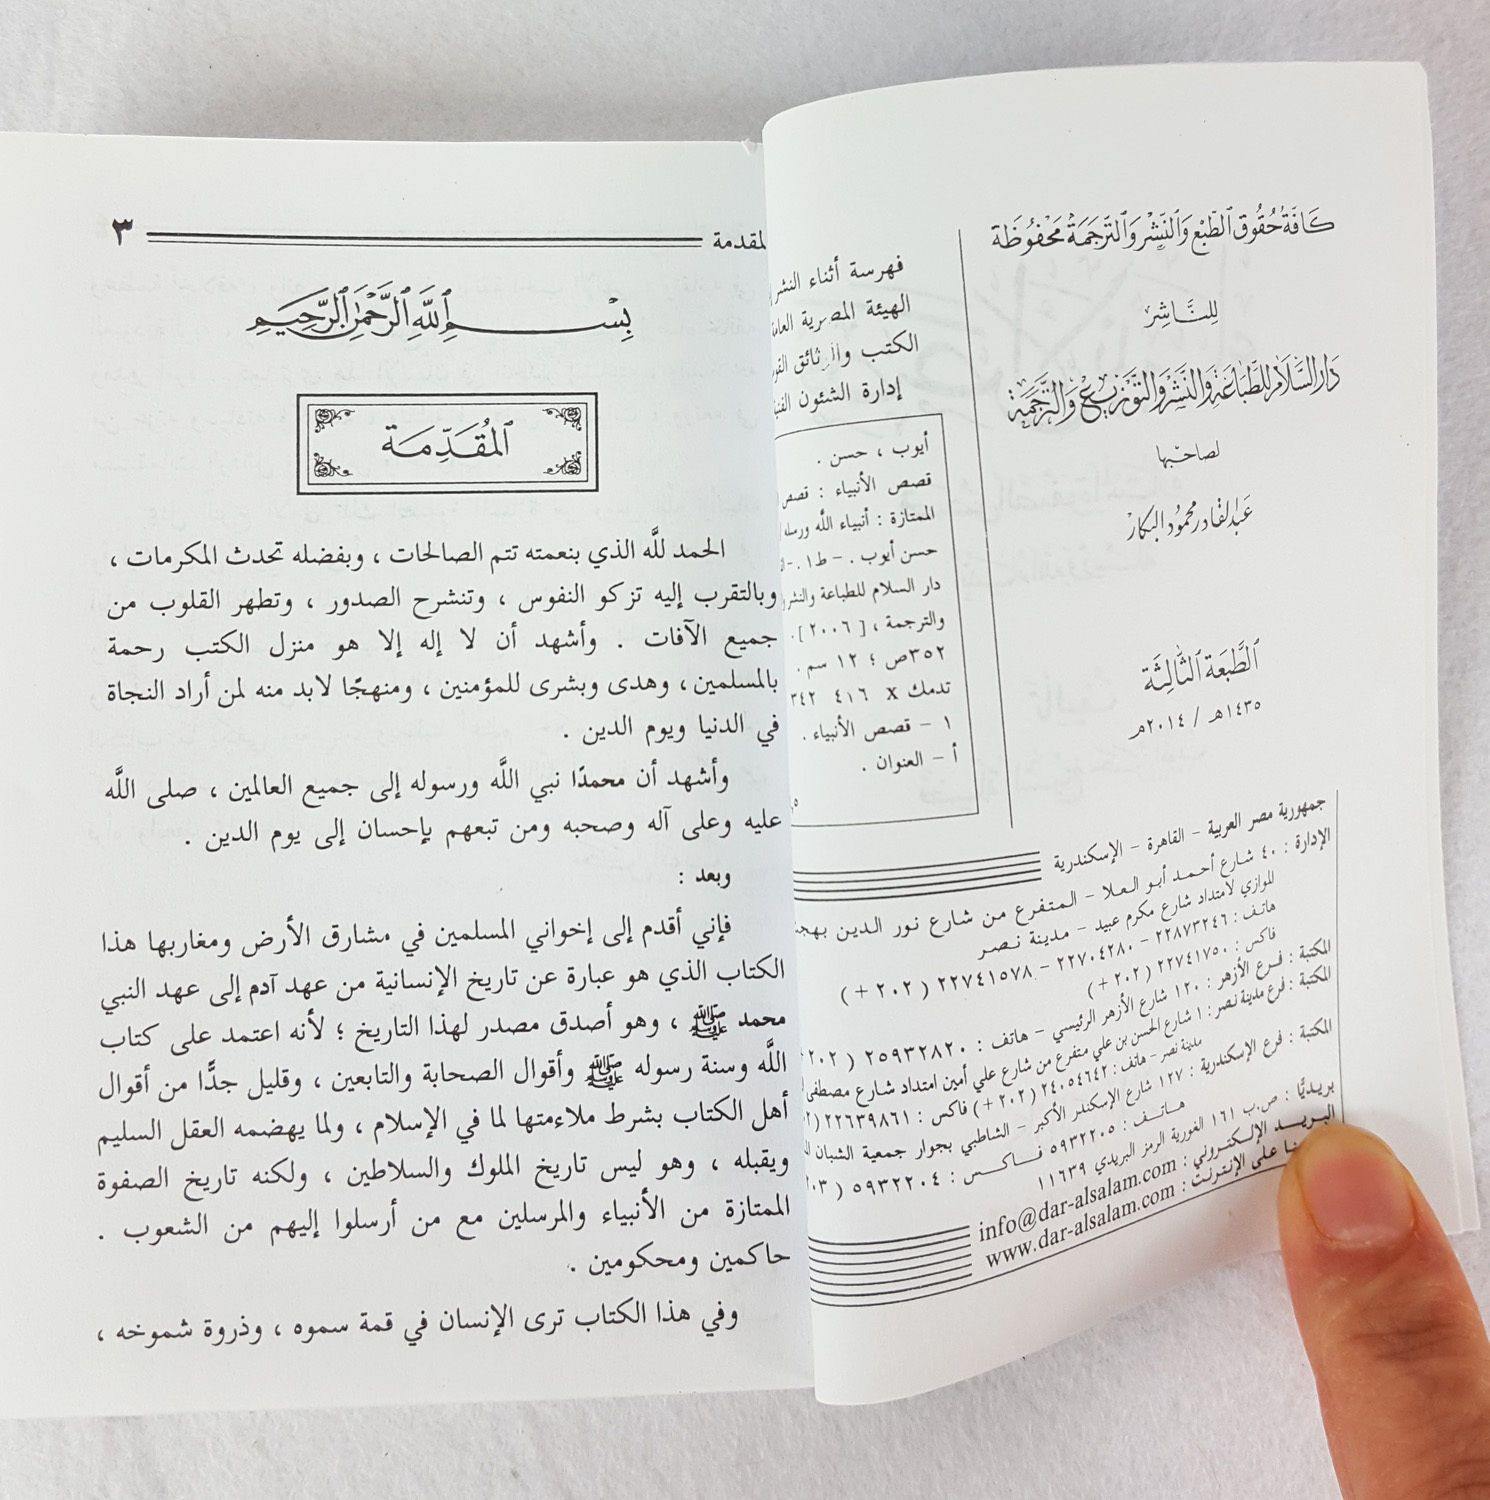 كَافَّةُ حُقُوقِ الطَّبْعِ وَالنَّشْرِ وَالتَّرْجَمَةِ مَحْفُوظَة
لِلنَّاشِرِ
دَارُ السَّلَامِ لِلطِّبَاعَةِ وَالنَّشْرِ وَالتَّوْزِيعِ وَالتَّرْجَمَةِ
لصاحبها
عبد القادر محمود البكار
الطَّبْعَة الثَّالِثَة
١٤٣٥هـ / ٢٠١٤مـ
فهرسة أثناء النشر
الهيئة المصرية
الكتب والوثائق
إدارة الشئون
أيوب ، حسن .
قصص الأنبياء :
الممتازة : أنبياء الله
حسن أيوب . - ط١ . -
دار السلام للطباعة
والترجمة ، [ ٢٠٠٦ ] .
٣٥٢ص ؛ ١٢ سم .
تدمك X ٤١٦ ٣٤٢
١ - قصص الأنبياء .
أ - العنوان .
جمهورية مصر العربية - القاهرة - الإسكندرية
الإدارة : ٤٠ شارع أحمد أبو العلا - المتفرع من شارع نور الدين
الموازي لامتداد شارع مكرم عبيد - مدينة نصر
هاتف : ٢٢٨٧٣٢٤٦ - ٢٢٧٠٤٢٨٠ - ٢٢٧٤١٥٧٨ ( ٢٠٢ + )
فاكس : ٢٢٧٤١٧٥٠ ( ٢٠٢ + )
المكتبة : فرع الأزهر : ١٢٠ شارع الأزهر الرئيسي - هاتف : ٢٥٩٣٢٨٢٠ ( ٢٠٢
المكتبة : فرع مدينة نصر : ١ شارع الحسن بن علي متفرع من شارع علي أمين امتداد شارع مصطفى
مدينة نصر - هاتف : ٢٤٠٥٤٦٤٢ ( ٢٠٢ + ) فاكس : ٢٢٦٣٩٨٦١
المكتبة : فرع الإسكندرية : ١٢٧ شارع الإسكندر الأكبر - الشاطبي بجوار جمعية الشبان
هاتف : ٥٩٣٢٢٠٥ فاكس : ٥٩٣٢٢٠٤ ( ٢٠٣
بريديًا : ص.ب ١٦١ الغورية الرمز البريدي ١١٦٣٩
البريد الإلكتروني : info@dar-alsalam.com
على الإنترنت : www.dar-alsalam.com
لمقدمة ٣
بِسْمِ اللَّهِ الرَّحْمَٰنِ الرَّحِيمِ
المُقَدِّمَة
الحمد للَّه الذي بنعمته تتم الصالحات ، وبفضله تحدث المكرمات ،
وبالتقرب إليه تزكو النفوس ، وتنشرح الصدور ، وتطهر القلوب من
جميع الآفات . وأشهد أن لا إله إلا هو منزل الكتب رحمة
بالمسلمين ، وهدى وبشرى للمؤمنين ، ومنهجًا لابد منه لمن أراد النجاة
في الدنيا ويوم الدين .
وأشهد أن محمدًا نبي اللَّه ورسوله إلى جميع العالمين ، صلى اللَّه
عليه وعلى آله وصحبه ومن تبعهم بإحسان إلى يوم الدين .
وبعد :
فإني أقدم إلى إخواني المسلمين في مشارق الأرض ومغاربها هذا
الكتاب الذي هو عبارة عن تاريخ الإنسانية من عهد آدم إلى عهد النبي
محمد ﷺ ، وهو أصدق مصدر لهذا التاريخ ؛ لأنه اعتمد على كتاب
اللَّه وسنة رسوله ﷺ وأقوال الصحابة والتابعين ، وقليل جدًّا من أقوال
أهل الكتاب بشرط ملاءمتها لما في الإسلام ، ولما يهضمه العقل السليم
ويقبله ، وهو ليس تاريخ الملوك والسلاطين ، ولكنه تاريخ الصفوة
الممتازة من الأنبياء والمرسلين مع من أرسلوا إليهم من الشعوب .
حاكمين ومحكومين .
وفي هذا الكتاب ترى الإنسان في قمة سموه ، وذروة شموخه ،